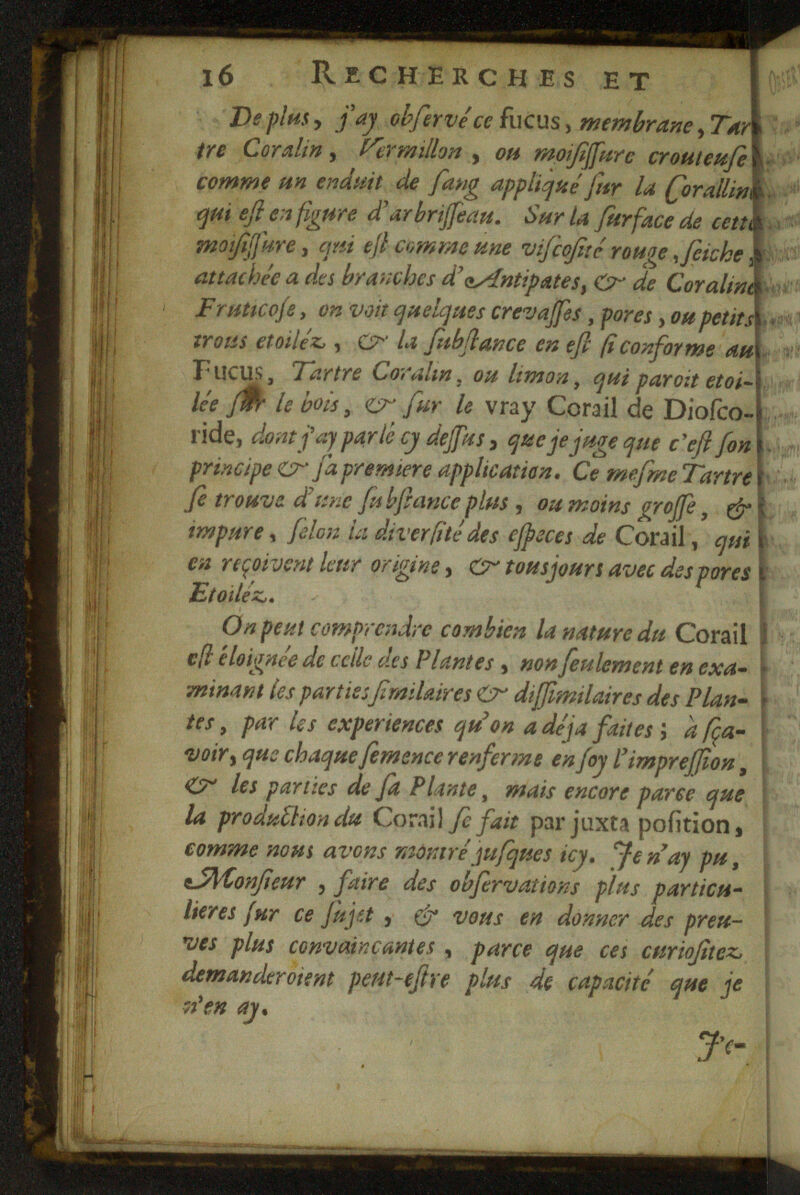 16 RECHERCHES ET
De plus, j'ay obſervé ce fucus, membrane, Tar-
tre Coralin, Vermillon, ou moiſiſſure crouteuſe
comme un enduit de ſang appliqué ſur la Corallin
qui eſt en figure d'arbriſſeau. Sur la ſurface de cette
moiſiſſure, qui eſt comme une viſcoſité rouge, ſeiche
attachée a des branches d'Antipates, & de Coraline
Fruticoſe, on voit quelques crevaſſes, pores, ou petits
trous etoiléz, & la ſubſtance en eſt ſi conforme au
Fucus, Tartre Coralin, ou limon, qui paroit etoi-
lée ſur le bois, & ſur le vray Corail de Dioſco-
ride, dont j'ay parlé cy deſſus, que je juge que c'eſt ſon
principe & ſa premiere application. Ce meſme Tartre
ſe trouve d'une ſubſtance plus, ou moins groſſe, &
impure, ſelon la diverſité des eſpeces de Corail, qui
en reçoivent leur origine, & tousjours avec des pores
Etoiléz.
On peut comprendre combien la nature du Corail
eſt éloignée de celle des Plantes, non ſeulement en exa-
minant les parties ſimilaires & diſſimilaires des Plan-
tes, par les experiences qu'on a déja faites; à ſça-
voir, que chaque ſemence renferme en ſoy l'impreſſion,
& les parties de ſa Plante, mais encore parce que
la production du Corail ſe fait par juxta poſition,
comme nous avons montré juſques icy. Je n'ay pu,
Monſieur, faire des obſervations plus particu-
lieres ſur ce ſujet, & vous en donner des preu-
ves plus convaincantes, parce que ces curioſitez
demanderoient peut-eſtre plus de capacité que je
n'en ay.
Je-